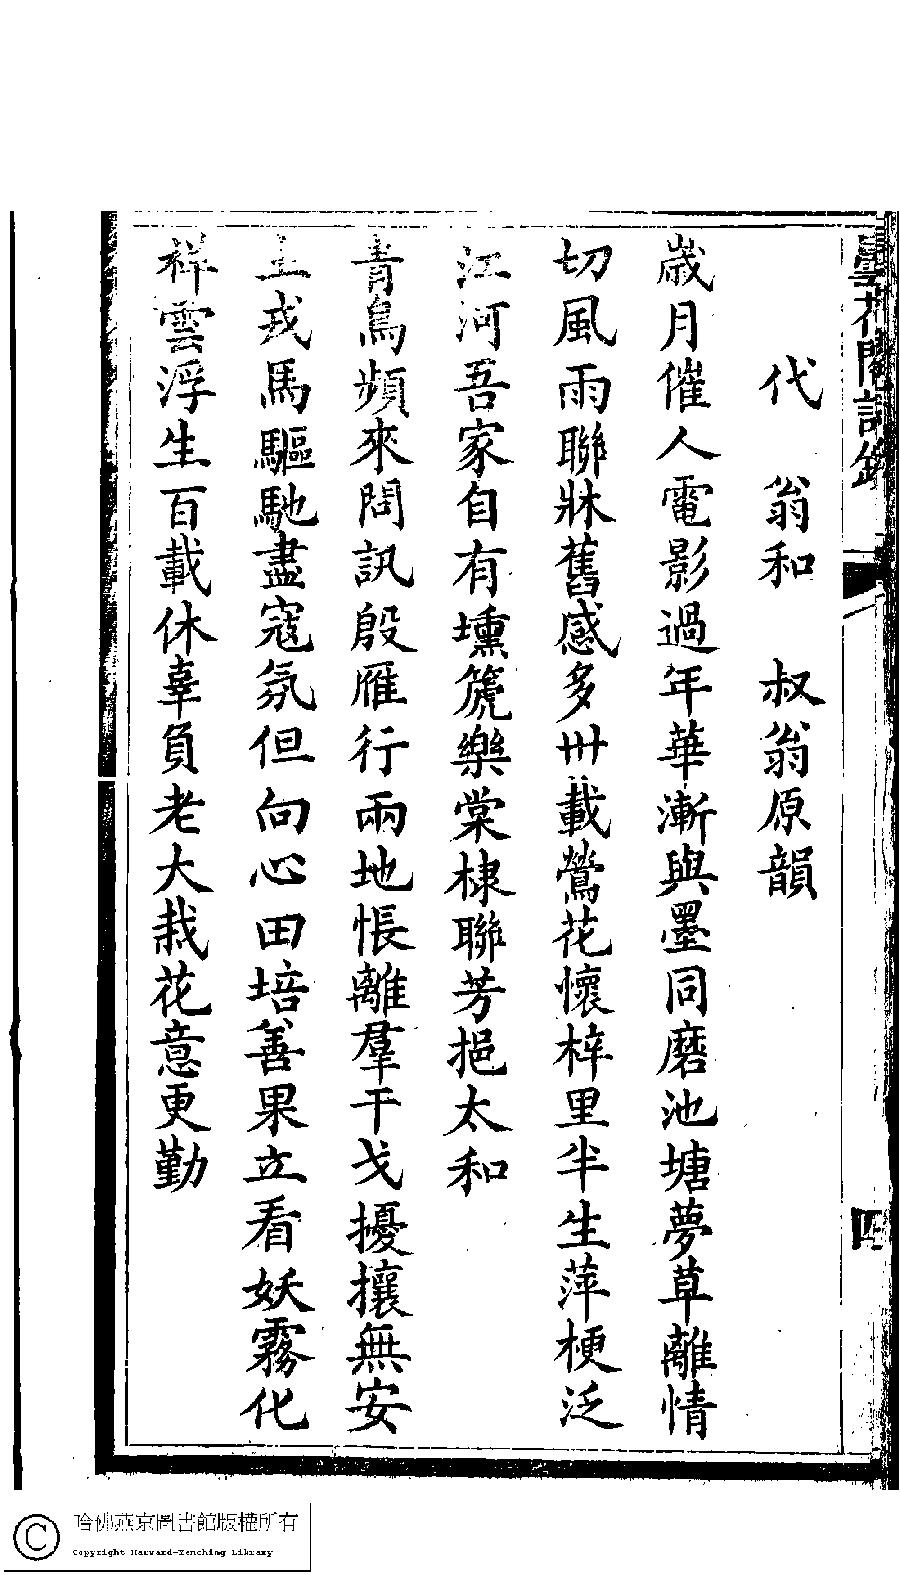 曇花閣詩鈔
四
代　翁和　叔翁原韻
歲月催人電影過年華漸與墨同磨池塘夢草離情
切風雨聯牀舊感多卅載鶯花懷梓里半生萍梗泛
江河吾家自有壎篪樂棠棣聯芳挹太和
青鳥頻來問訊殷雁行兩地悵離羣干戈擾攘無安
土戎馬驅馳盡寇氛但向心田培善果立看妖霧化
祥雲浮生百載休辜負老大栽花意更勤
哈佛燕京圖書館版權所有
Copyright Harvard-Yenching Library